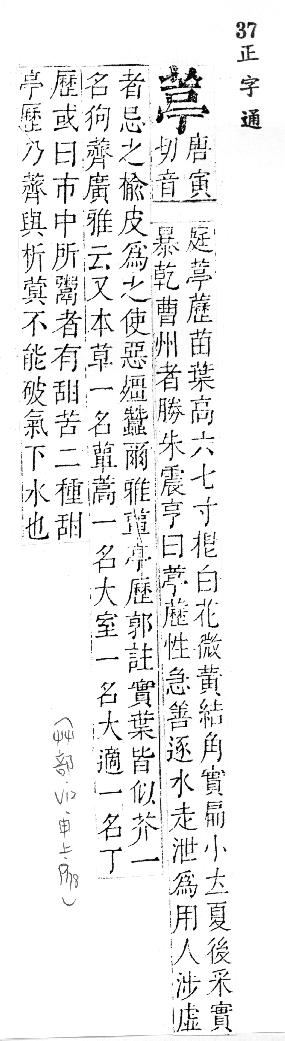 37正字通
葶
唐寅
切音
庭葶藶苗葉高六七寸根白花微黃結角實扁小立夏後采實
暴乾曹州者勝朱震亨曰葶藶性急善逐水走泄爲用人涉虛
者忌之楡皮爲之使惡殭蠶爾雅蕇亭歷郭註實葉皆似芥一
名狗薺廣雅云又本草一名蕇蒿一名大室一名大適一名丁
歷或曰市中所鬻者有甜苦二種甜
亭歷乃薺與析蓂不能破氣下水也
(艸部·V12·申上·